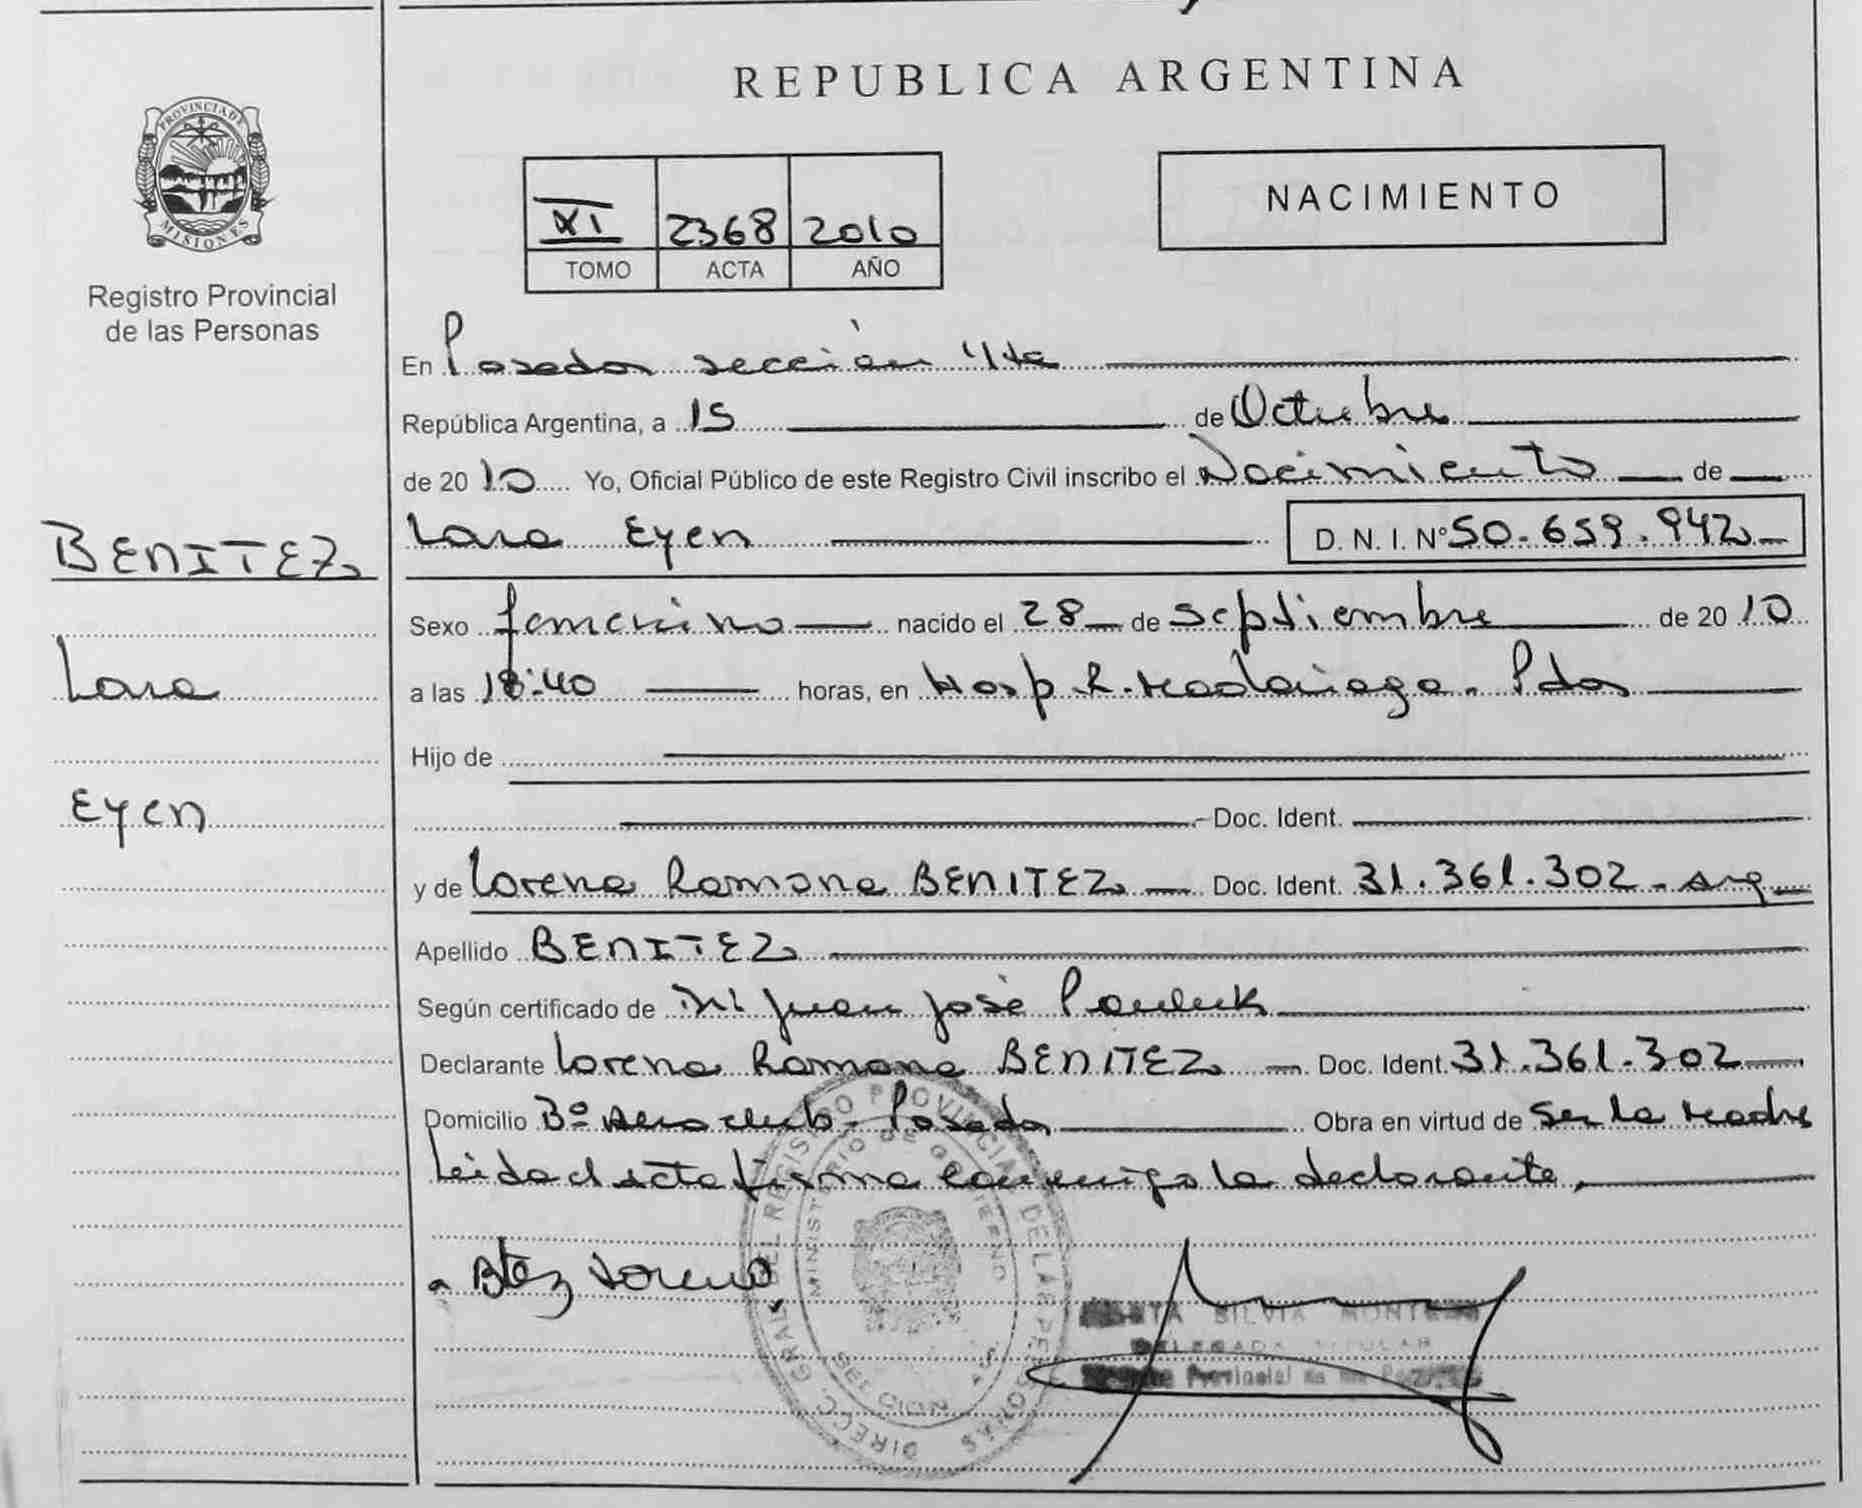 PROVINCIA DE
MISIONES
Registro Provincial
de las Personas
BENITEZ
Lara
Eyen
REPUBLICA ARGENTINA
XI 2368 2010
TOMO ACTA AÑO
NACIMIENTO
En Posadas sección 4ta
República Argentina, a 15 de Octubre
de 2010 Yo, Oficial Público de este Registro Civil inscribo el Nacimiento de
Lara Eyen D. N. I. Nº 50.659.942
Sexo femenino nacido el 28 de Septiembre de 2010
a las 18:40 horas, en Hosp. R. Madariaga. Pdas
Hijo de
Doc. Ident.
y de Lorena Ramona BENITEZ Doc. Ident. 31.361.302 - arg
Apellido BENITEZ
Según certificado de Juan José
Declarante Lorena Ramona BENITEZ Doc. Ident. 31.361.302
Domicilio Bº Aero club - Posadas Obra en virtud de Ser la Madre
Leida el acta firma conmigo la declarante,
Btez Lorena
SILVIA
DELEGADA TITULAR
Provincial de las
DIRECC. GRAL. DEL REGISTRO PROVINCIAL DE LAS PERSONAS
MINISTERIO DE GOBIERNO